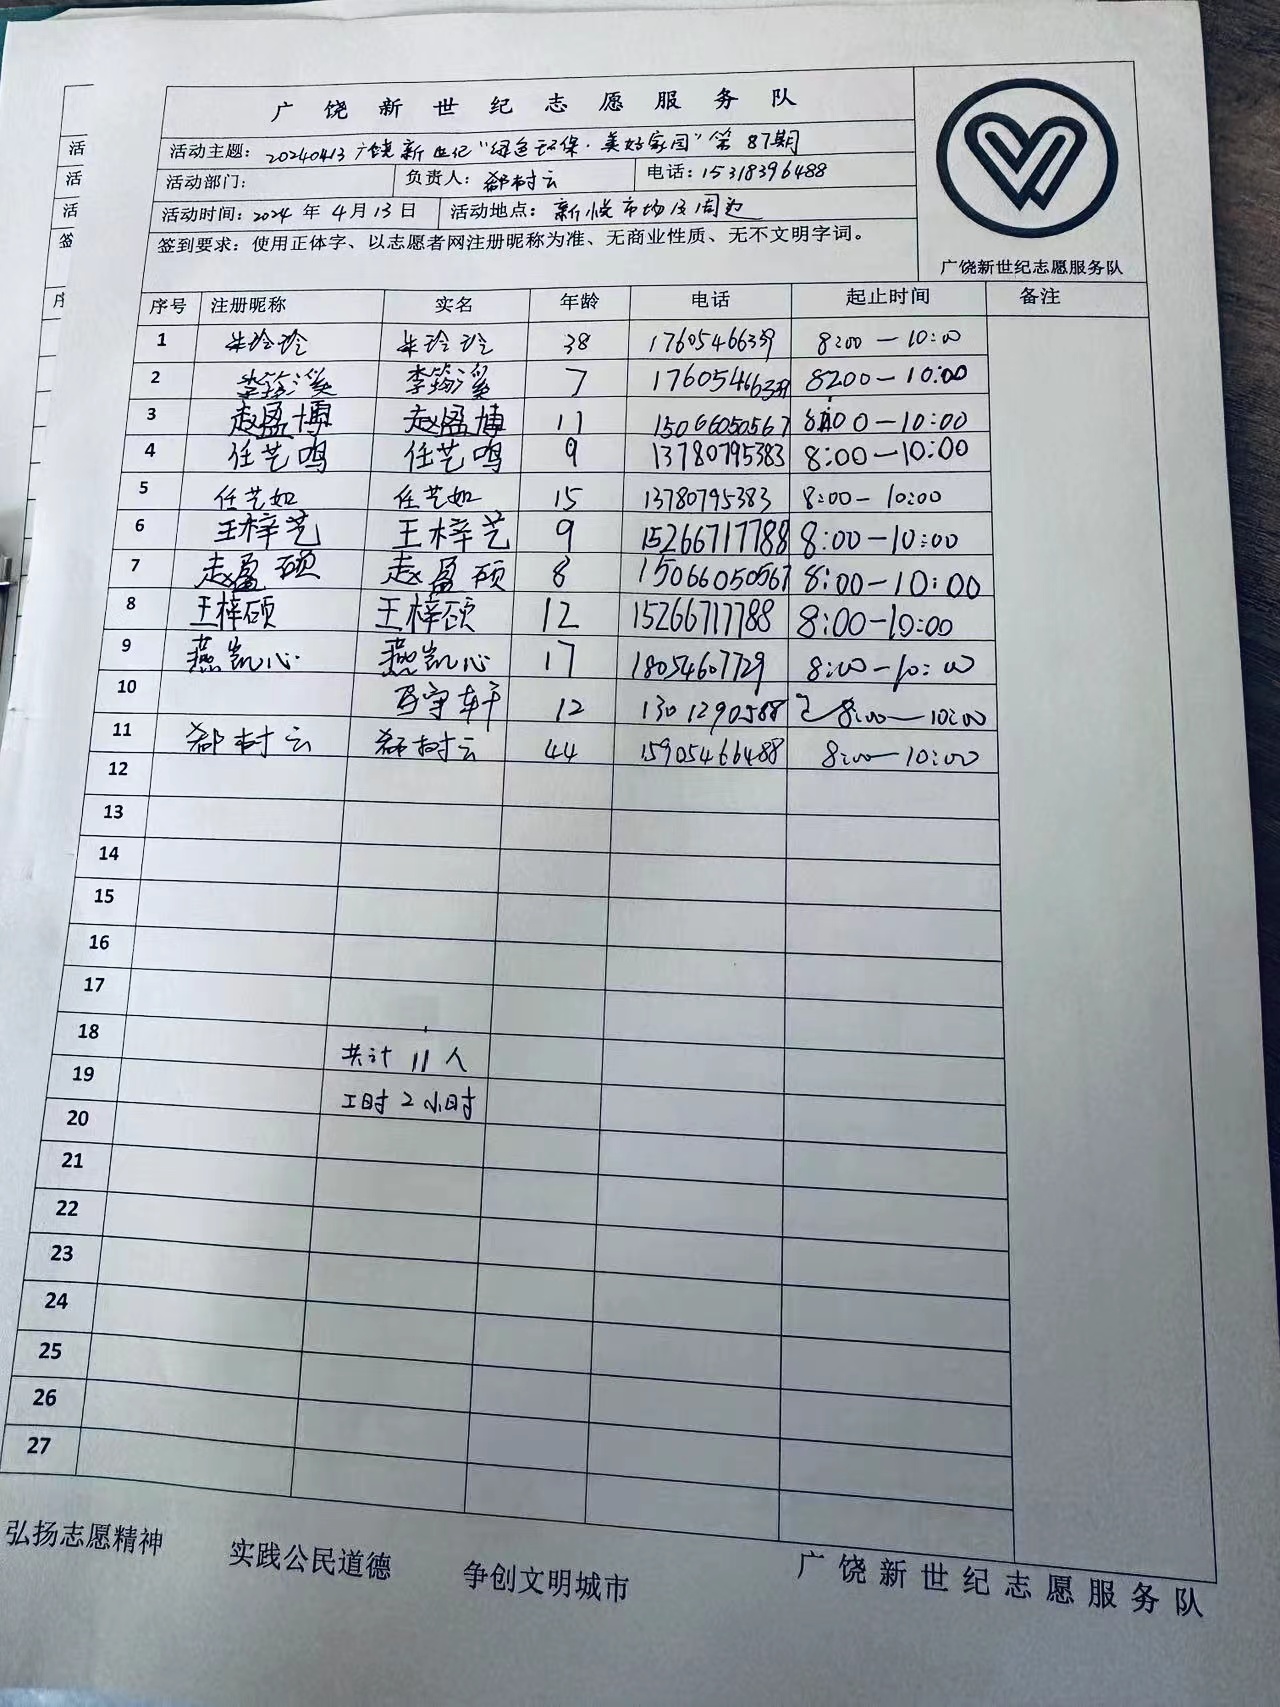 广饶新世纪志愿服务队
活动主题：20240413广饶新世纪“绿色环保·美好家园”第87期
活动部门： 负责人：郗树云 电话：15318396488
活动时间：2024年4月13日 活动地点：新悦市场及周边
签到要求：使用正体字、以志愿者网注册昵称为准、无商业性质、无不文明字词。
广饶新世纪志愿服务队
序号 注册昵称 实名 年龄 电话 起止时间 备注
1 朱玲玲 朱玲玲 38 17605466339 8:00—10:00
2 李筠溪 李筠溪 7 17605466339 8:00—10:00
3 赵盈博 赵盈博 11 15066050567 8:00—10:00
4 任艺鸣 任艺鸣 9 13780795383 8:00—10:00
5 任艺如 任艺如 15 13780795383 8:00—10:00
6 王梓艺 王梓艺 9 15266717788 8:00—10:00
7 赵盈硕 赵盈硕 8 15066050567 8:00—10:00
8 王梓硕 王梓硕 12 15266717788 8:00—10:00
9 燕凯心 燕凯心 17 18054607729 8:00—10:00
10 守轩 12 1301290588 8:00—10:00
11 郗树云 郗树云 44 15905466488 8:00—10:00
12
13
14
15
16
17
18
共计11人
19
工时2小时
20
21
22
23
24
25
26
27
弘扬志愿精神 实践公民道德 争创文明城市 广饶新世纪志愿服务队